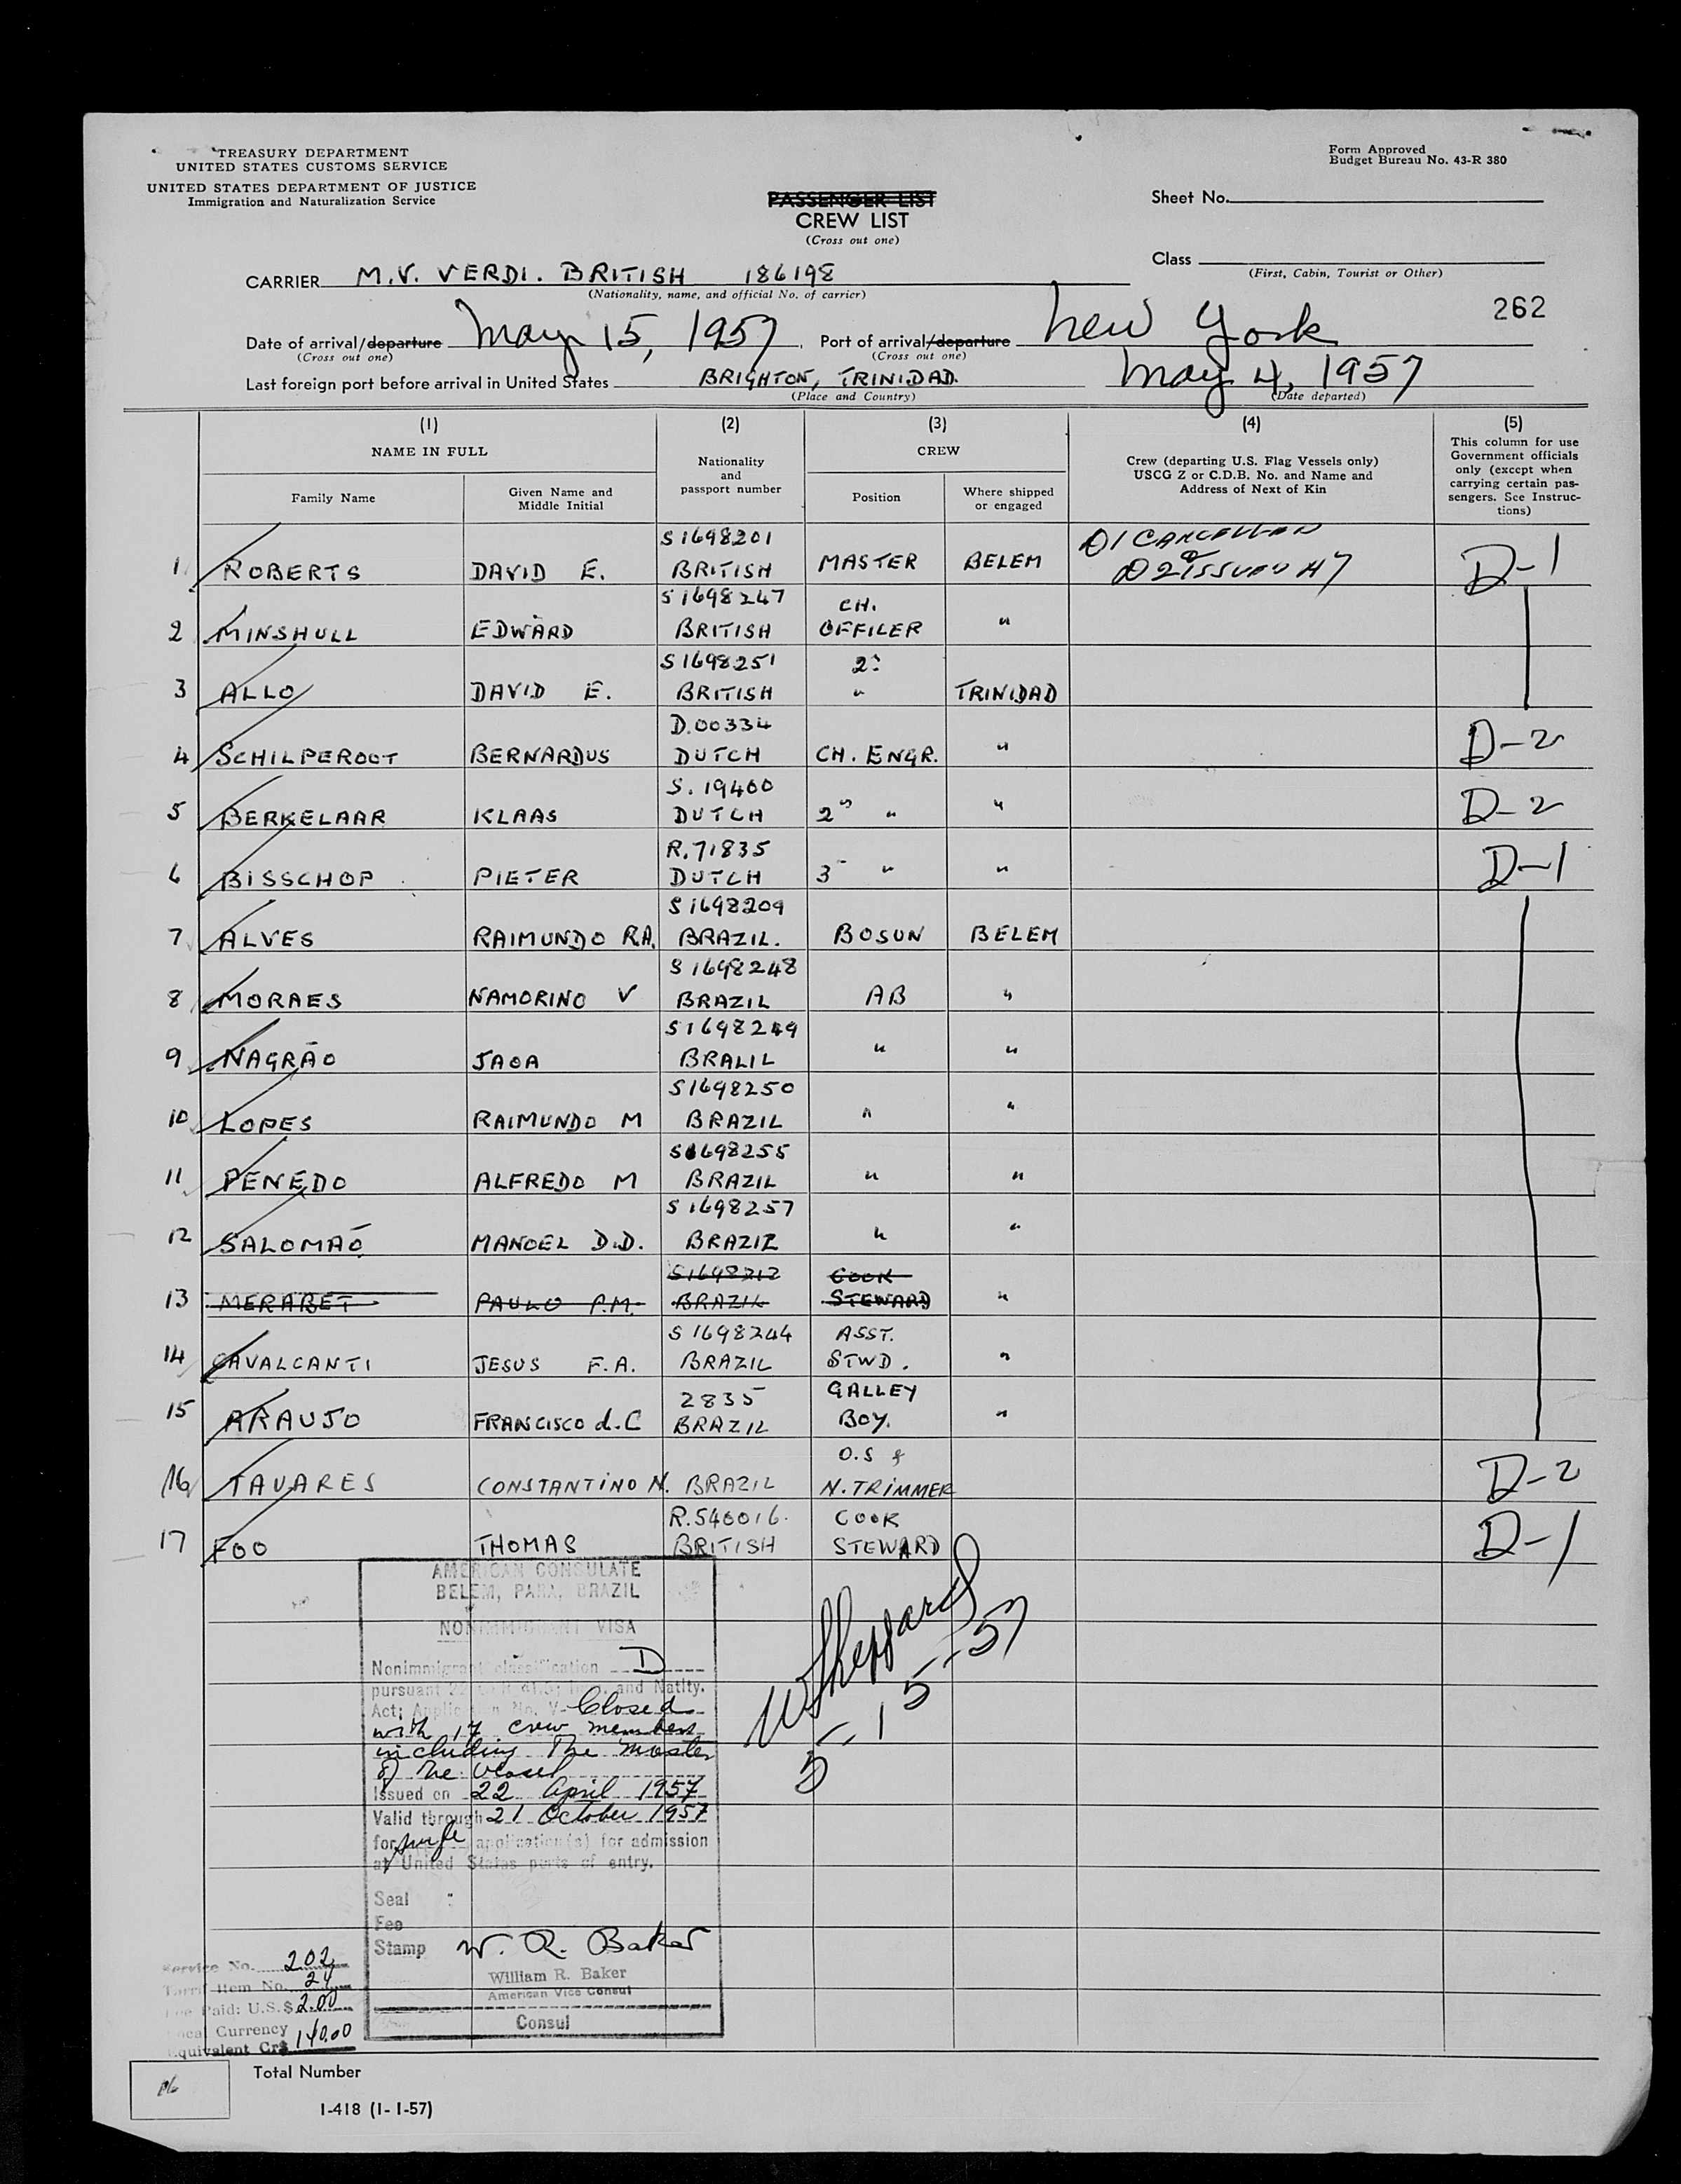 TREASURY DEPARTMENT
UNITED STATES CUSTOMS SERVICE
UNITED STATES DEPARTMENT OF JUSTICE
Immigration and Naturalization Service
Form Approved
Budget Bureau No. 43-R 380
PASSENGER LIST
CREW LIST
(Cross out one)
Sheet No.
Class
(First, Cabin, Tourist or Other)
CARRIER M.V. VERDI. BRITISH 186198
(Nationality, name, and official No. of carrier)
262
Date of arrival/departure May 15, 1957, Port of arrival/departure New York
(Cross out one) (Cross out one)
Last foreign port before arrival in United States BRIGHTON, TRINIDAD. May 4, 1957
(Place and Country) (Date departed)
(1) (2) (3) (4) (5)
NAME IN FULL
Family Name
Given Name and Middle Initial
Nationality and passport number
CREW
Position
Where shipped or engaged
Crew (departing U.S. Flag Vessels only)
USCG Z or C.D.B. No. and Name and
Address of Next of Kin
This column for use
Government officials
only (except when
carrying certain pas-
sengers. See Instruc-
tions)
S1698201 D1 CANCELLED
1 ROBERTS DAVID E. BRITISH MASTER BELEM D2 ISSUED D-1
S1698247 CH.
2 MINSHULL EDWARD BRITISH OFFILER "
S1698251 2:
3 ALLO DAVID E. BRITISH " TRINIDAD
D.00334
4 SCHILPEROOT BERNARDUS DUTCH CH. ENGR. " D-2
S. 19400
5 BERKELAAR KLAAS DUTCH 2" " " D-2
R.71835
6 BISSCHOP PIETER DUTCH 3 " " D-1
S1698209
7 ALVES RAIMUNDO RA. BRAZIL. BOSUN BELEM
S1698248
8 MORAES NAMORINO V BRAZIL AB "
S1698249
9 NAGRÃO JAOA BRALIL " "
S1698250
10 LOPES RAIMUNDO M BRAZIL " "
S1698255
11 PENEDO ALFREDO M BRAZIL " "
S1698257
12 SALOMAÕ MANOEL D.D. BRAZIL " "
S1698212 COOK
13 MERABET PAULO P.M. BRAZIL STEWARD "
S1698244 ASST.
14 CAVALCANTI JESUS F.A. BRAZIL STWD. "
2835 GALLEY
15 ARAUJO FRANCISCO d.C BRAZIL BOY. "
O.S &
16 TAVARES CONSTANTINO N. BRAZIL N.TRIMMER D-2
R.546016. COOK
17 FOO THOMAS BRITISH STEWARD D-1
AMERICAN CONSULATE
BELEM, PARA, BRAZIL
NONIMMIGRANT VISA
Nonimmigrant classification D
pursuant and Natlty.
Act; Application No. V- Closed
with 17 crew members
including the master
of the vessel
Issued on 22 April 1957
Valid through 21 October 1957
for single application(s) for admission
at United States ports of entry.
Seal
Fee
Stamp W. R. Baker
William R. Baker
American Vice Consul
Consul
W Sheppard
5-15-57
Service No. 202
Tariff Item No. 24
Fee Paid: U.S.$ 2.00
Local Currency
Equivalent Cr$ 140.00
Total Number
16
I-418 (1-1-57)